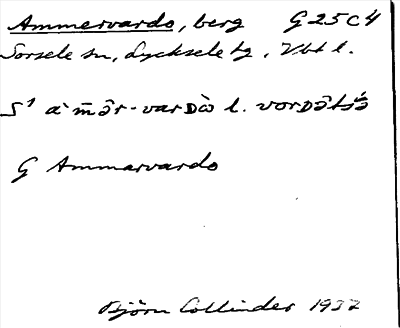 Ammarvardo, berg G25C4
Sorsele sn, Lycksele tg, Vbt l.
S¹ à·m̄ə̂r-varᴅὼ l. vorᴅə̂tsə́
G Ammarvardo
Björn Collinder 1932